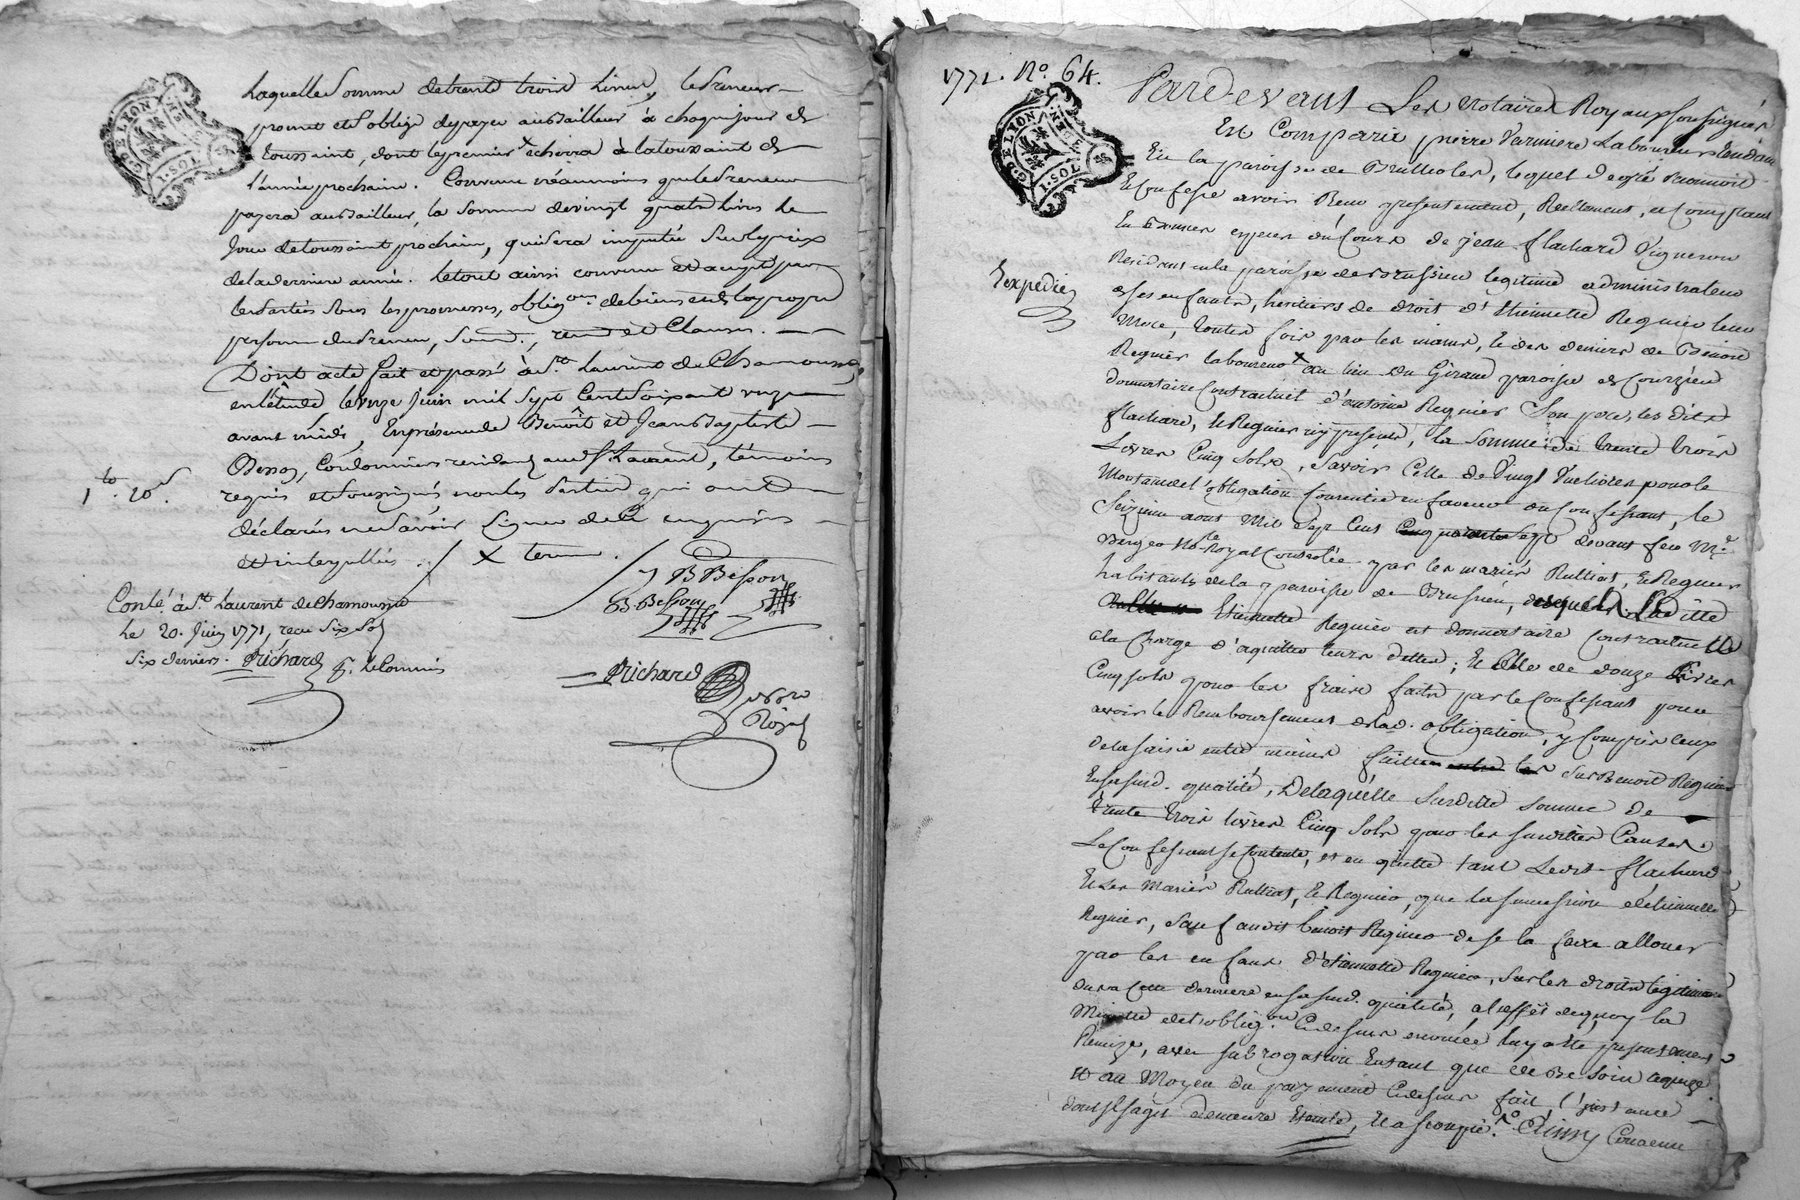 G. DE LYON
1. SOL
laquelle somme de trente trois livres, le preneur
promet et s'oblige de payer au bailleur à chaque jour de
toussaint, dont le premier x echerra à la toussaint de
l'année prochaine. Convenu néanmoins que le preneur
payera au bailleur, la somme de vingt quatre livres le
jour de toussaint prochain, qui sera imputée sur le prix
de la derniere année. Le tout ainsi convenu et accepté par
les parties sous les promesses, oblig.ons de biens et de la propre
personne du preneur, soum., renon et Clauses.
Dont acte fait et passé à St. Laurent de Chamousset,
en l'étude le onze juin mil sept cent soixant onze
avant midi, En présence de Benoît et Jean Baptiste
Besson, Cordonniers residants aud. St. Laurent, témoins
1.lt. 10 s.
requis et soussignés, non les parties qui ont
déclarés ne savoir signer de ce enquises
et interpellées ./. x terme.
B Besson
B. Besson
Conlé à St. Laurent de Chamousset
le 20. Juin 1771, reçu six sol
six deniers. Richard
Richard
Royal
1771. No. 64.
G. DE LYON
1. SOL
Pardevant Les Notaires Royaux soussignés
Est Comparu pierre Varniere Laboureur
En la paroisse de Brullioles, lequel de gré
Et Confesse avoir Reçu presentement, Reellement, et Comptant
En Especes du Cours de jean flachard Vigneron
Resident en la paroisse de Brussieu legitime administrateur
Expedié
de ses enfants, heritiers de droit d'Etiennette Regnier leur
Mere, toutes fois par les mains, et des deniers de Benoit
Regnier laboureur x au lieu du Giraud paroisse de Courzieu
donnataire Contractuel d'antoine Regnier Son pere, les dits
flachard, et Regnier icy presents, la Somme de trente trois
Livres Cinq Sols, Savoir Celle de Vingt Une livres pour le
Montant de l'obligation Consentie en faveur du Confessant, le
Seizieme aout Mil Sept Cent Cinquante sept devant feu Me.
Berger Nore. Royal Controlée, par les mariés Rulliat, et Regnier
habitants de la paroisse de Brussieu, desquels Ladite
Etiennette Regnier est donnataire Contractuelle
a la Charge d'aquitter leurs dettes; Et Celle de douze Livres
Cinq sols pour les fraix faits par le Confessant pour
avoir le Remboursement de lad. obligation, y compris ceux
de la saisie entre mains faitte Sur Benoit Regnier
En sa sud. qualité, De laquelle Susditte Somme De
trente trois livres Cinq Sols pour les susdittes Causes
Le Confessant se Contente, et en quitte tant Ledit flachard
Et Les Mariés Rulliat, et Regnier, que la succession d'Etiennette
Regnier, Sauf audit Benoit Regnier de se la faire allouer
par les enfans d'Etiennette Regnier, Sur les droits legitimaires
dus a Cette derniere en sa sud. qualité, a l'effet de quoy la
Minutte de l'oblig.on Cy dessus enoncée luy a été presentement
Remize, avec subrogation En tant que de Besoin
et au Moyen du payement Cy dessus fait l'instance
dont s'agit demeure Eteinte, et assoupie. Ainsy Convenu